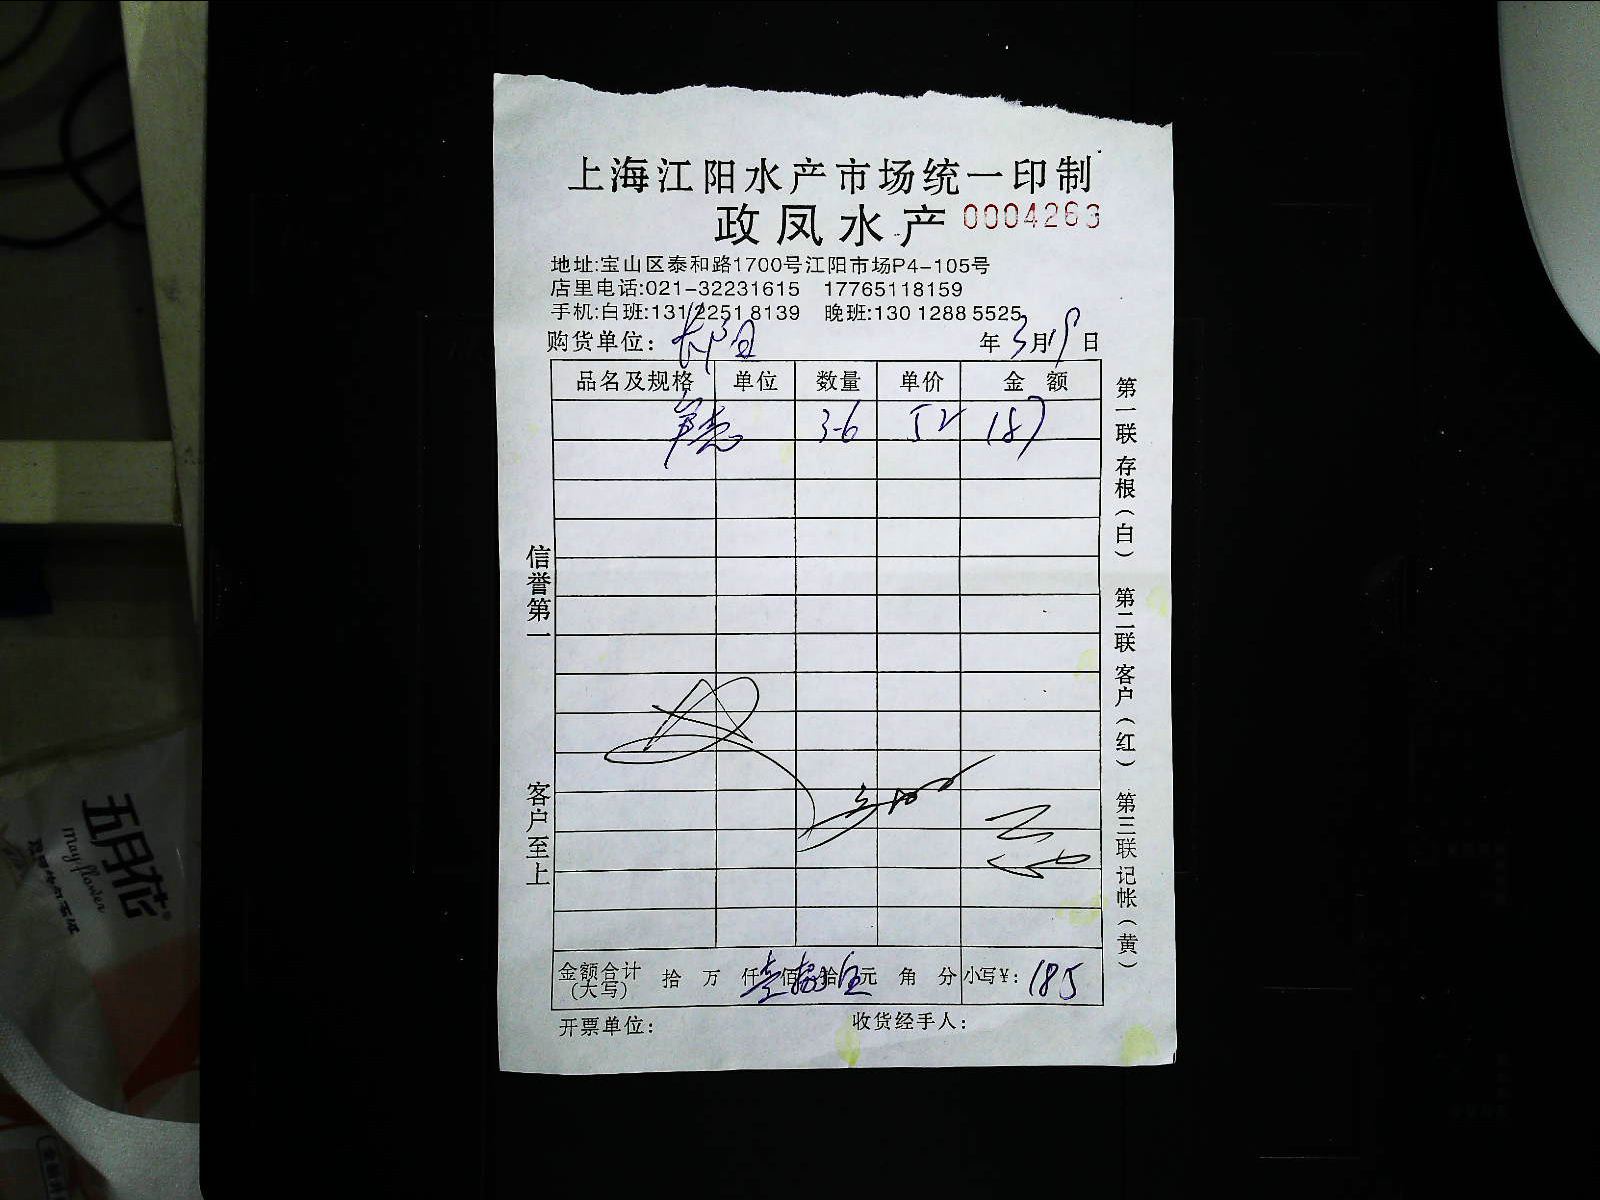 上海江阳水产市场统一印制
政凤水产 0004263
地址:宝山区泰和路1700号江阳市场P4-105号
店里电话:021-32231615 17765118159
手机:白班:131 2251 8139 晚班:130 1288 5525
购货单位: 年 3月19日
品名及规格 单位 数量 单价 金额
3-6 52 187
信誉第一
客户至上
第一联 存根(白) 第二联 客户(红) 第三联 记帐(黄)
金额合计(大写) 拾 万 仟 壹佰捌拾伍元 角 分 小写¥: 185
开票单位: 收货经手人:
五月花
May flower